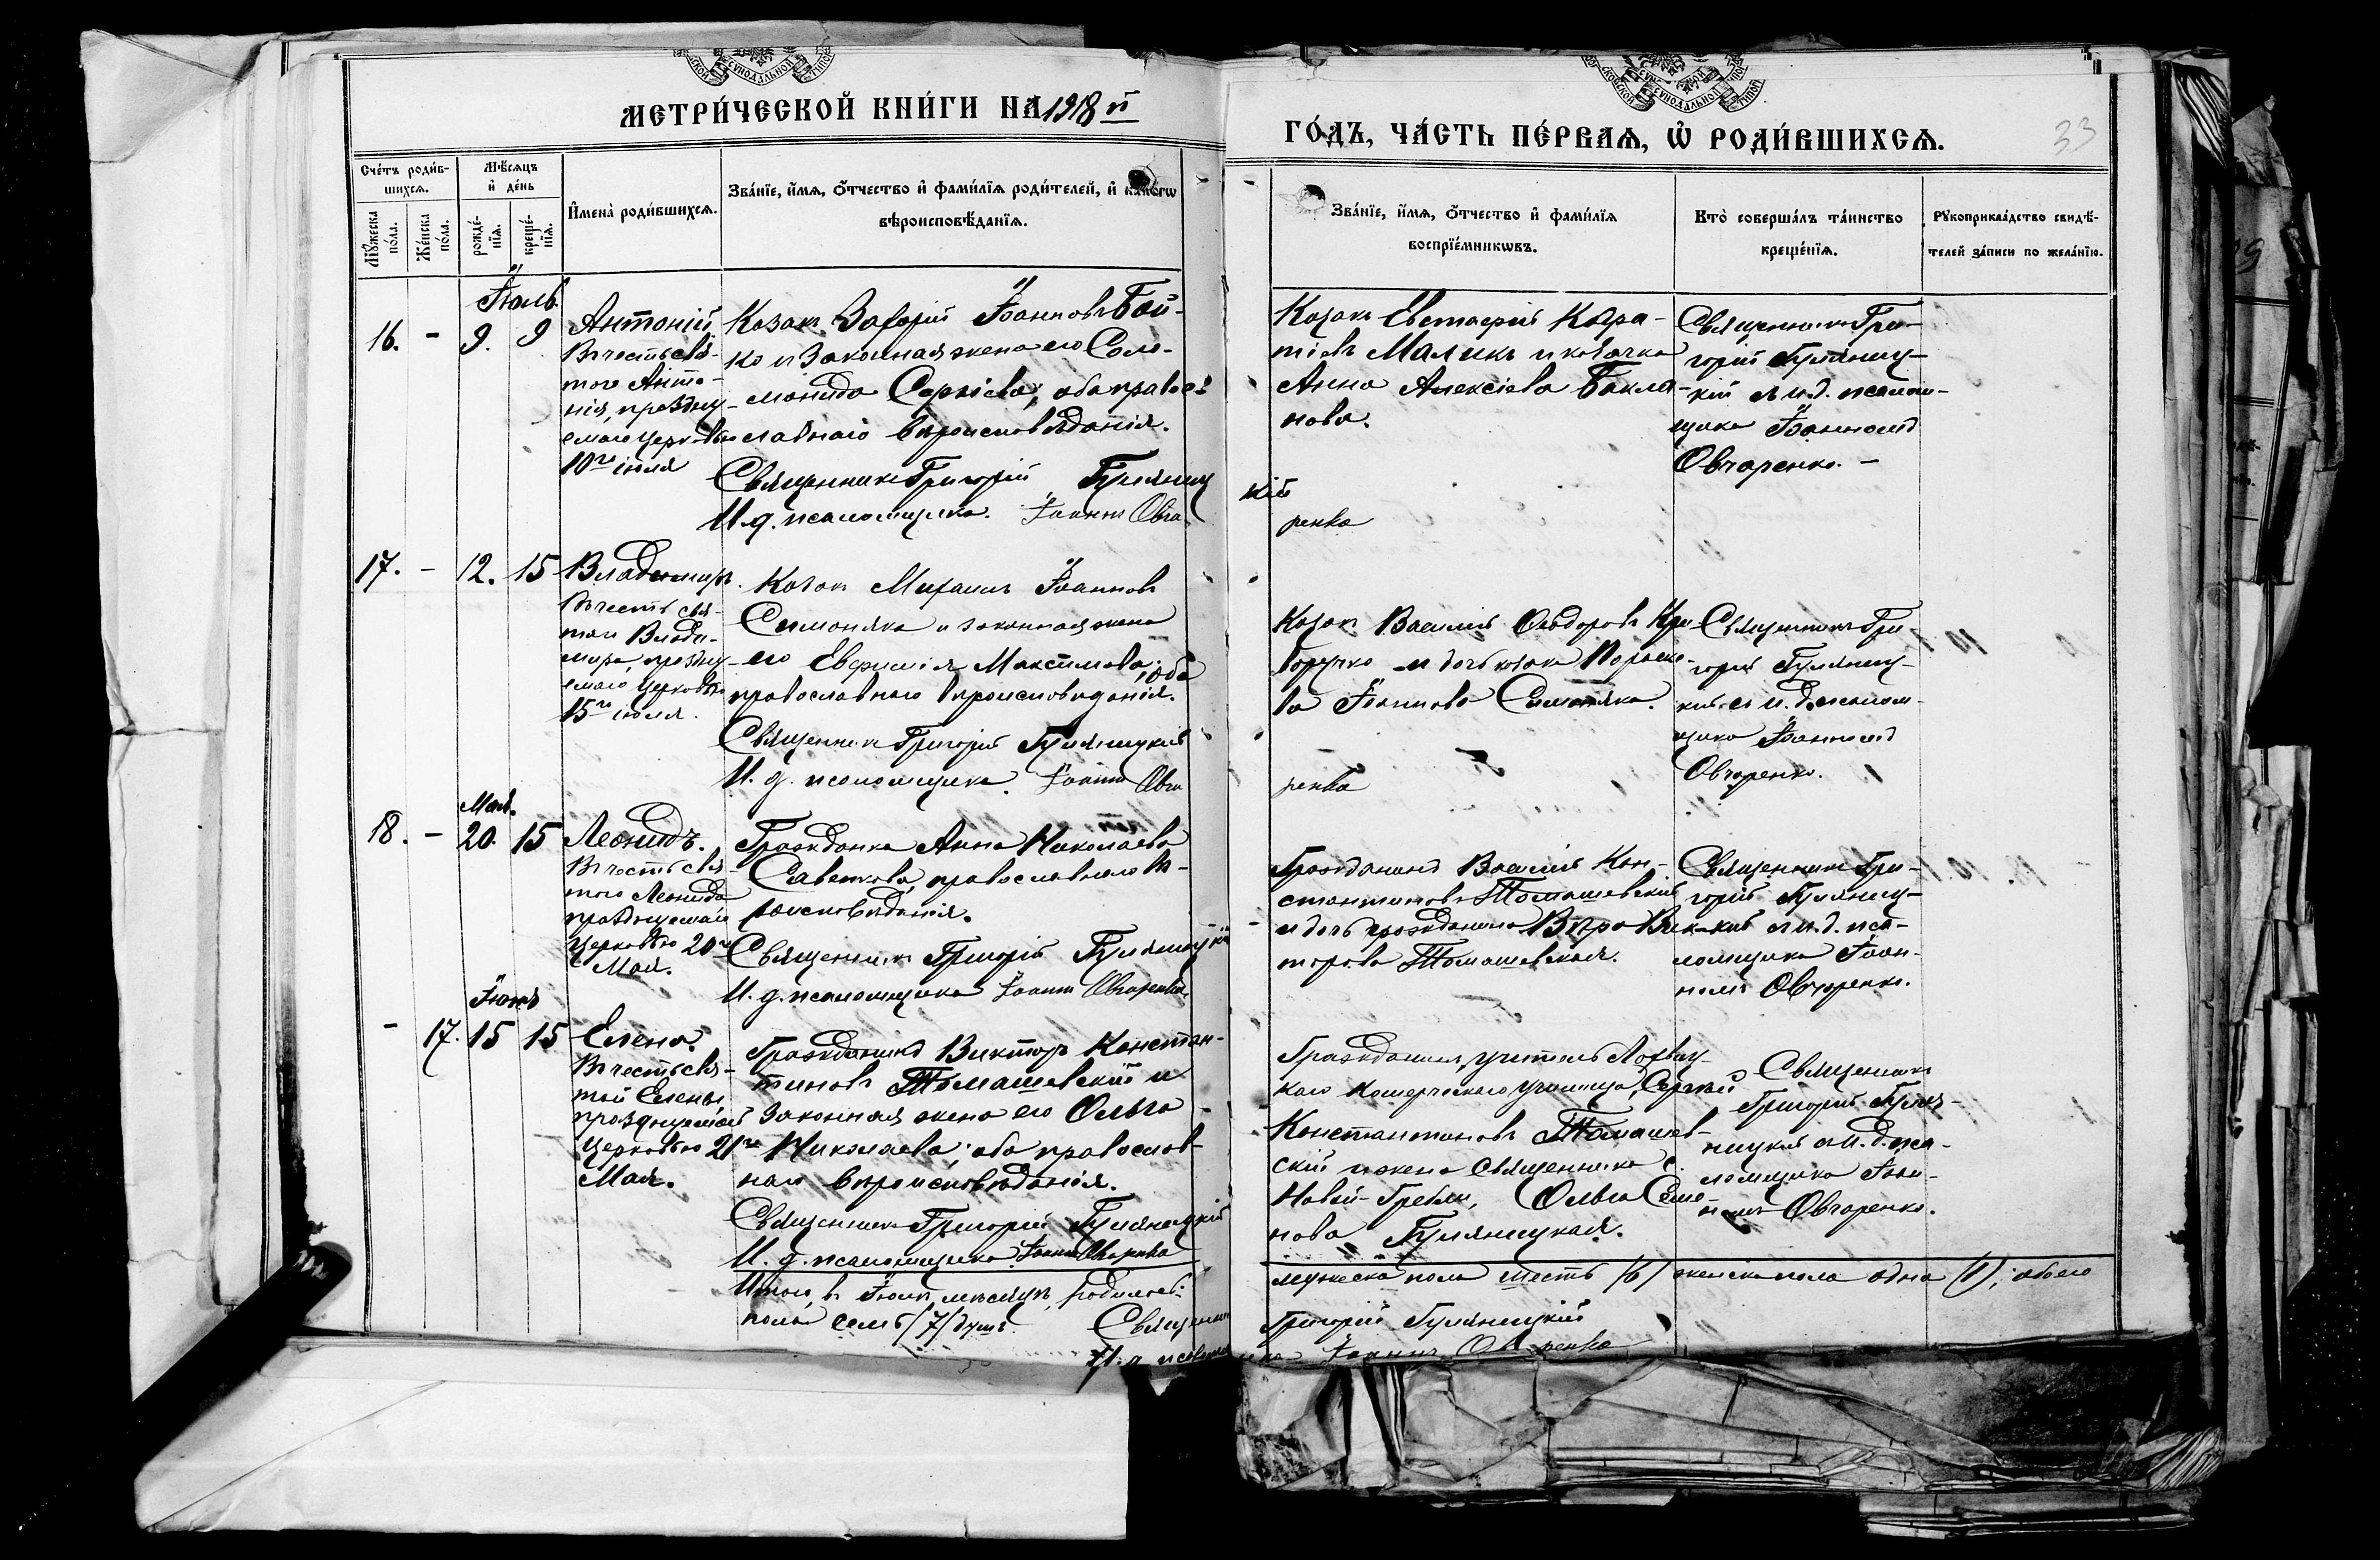 МЕТРИ́ЧЕСКОЙ КНИ́ГИ НА 1918 й
ГО́ДЪ, ЧА́СТЬ ПЕ́РВАѦ, Ѡ҆ РОДИ́ВШИХСѦ.
33
Сче́тъ роди́в-
шихсѧ.
Мꙋ́жеска
по́ла.
Же́нска
по́ла.
Мѣ́сѧцъ
и҆ де́нь
рожде́-
нїѧ.
креще́-
нїѧ.
И҆мена̀ роди́вшихсѧ.
Зва́нїе, и҆́мѧ, ѻ҆́тчество и҆ фами́лїѧ роди́телей, и҆ како́гѡ
вѣроисповѣ́данїѧ.
Зва́нїе, и҆́мѧ, ѻ҆́тчество и҆ фами́лїѧ
воспрїе́мникѡвъ.
Кто̀ соверша́лъ та́инство
креще́нїѧ.
Рꙋкоприкла́дство свидѣ́-
телей за́писи по жела́нїю.
Іюль
16. - 9. 9
Антоній
Въ честь свя-
того Анто-
нія, праздну-
емаго церковью
10го іюля
Козакъ Захарій Іоанновъ Бой-
ко и законная жена его Соло-
монида Сергіева; оба право-
славнаго вѣроисповѣданія.
Священникъ Григорій Гуляницкій
И. д. псаломщика Іоаннъ Овчаренко
Козакъ Евстафій Кодра-
тіевъ Маликъ и козачка
Анна Алексіева Бакла-
нова.
Священникъ Гри-
горій Гуляниц-
кій съ и. д. псалом-
щика Іоанномъ
Овчаренко. -
17. - 12. 15
Владиміръ.
Въ честь свя-
того Влади-
мира, праздну-
емаго церковью
15го іюля.
Козакъ Михаилъ Іоанновъ
Симоняка и законная жена
его Евфимія Максимова; оба
православнаго вѣроисповѣданія.
Священникъ Григорій Гуляницкій
И. д. псаломщика Іоаннъ Овчаренко
Козакъ Василій Ѳеодоровъ Кри-
воручко и дочь козака Параске-
ва Іоаннова Симоняка.
Священникъ Гри-
горій Гуляниц-
кій съ и. д. псалом-
щика Іоанномъ
Овчаренко.
Май.
18. - 20. 15
Леонидъ.
Въ честь свя-
того Леонида
празднуемаго
церковью 20го
Мая.
Гражданка Анна Николаева
Савенкова, православнаго вѣ-
роисповѣданія.
Священникъ Григорій Гуляницкій
И. д. псаломщика Іоаннъ Овчаренко
Гражданинъ Василій Кон-
стантиновъ Томашевскій
и дочь гражданина Вѣра Вик-
торова Томашевская.
Священникъ Гри-
горій Гуляниц-
кій съ и. д. пса-
ломщика Іоан-
номъ Овчаренко.
Іюнь
- 17. 15 15
Елена.
Въ честь свя-
той Елены,
празднуемой
церковью 21го
Мая.
Гражданинъ Викторъ Констан-
тиновъ Томашевскій и
законная жена его Ольга
Николаева; оба православ-
наго вѣроисповѣданія.
Священникъ Григорій Гуляницкій
И. д. псаломщика Іоаннъ Овчаренко
Гражданинъ, учитель Лохвиц-
каго Комерческаго училища, Сергѣй
Константиновъ Томашев-
скій и жена священника с.
Новой-Гребли, Ольга Симо-
нова Гуляницкая.
Священникъ
Григорій Гуля-
ницкій съ и. д. пса-
ломщика Іоан-
номъ Овчаренко.
Итого въ Іюлѣ мѣсяцѣ родилось: мужеска пола шесть (6) женска пола одна (1); обоего
пола семь (7) душъ. Священникъ Григорій Гуляницкій
И. д. псаломщика Іоаннъ Овчаренко